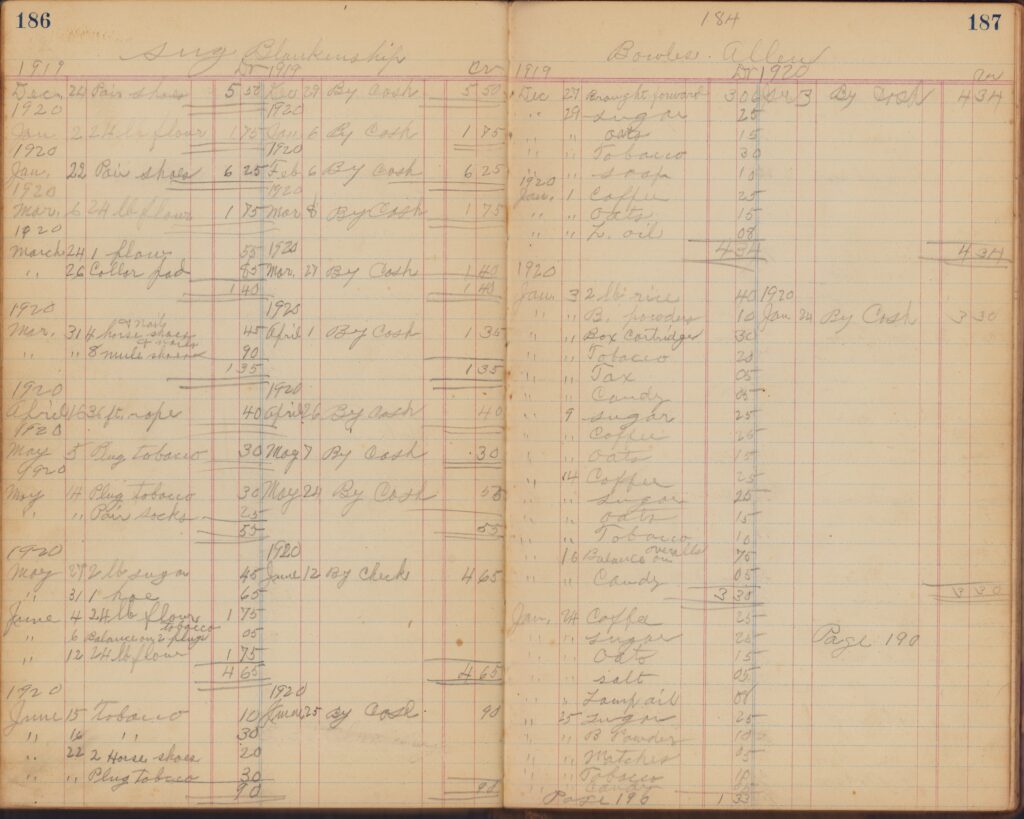 186
Blankenship
1919 Dr 1919 Cr
Dec 24 Pair shoes 5 50 Dec 29 By Cash 5 50
1920 1920
Jan 2 24 lb flour 1 75 Jan 6 By Cash 1 75
1920 1920
Jan. 22 Pair shoes 6 25 Feb 6 By Cash 6 25
1920 1920
Mar. 6 24 lb flour 1 75 Mar 8 By Cash 1 75
1920
March 24 1 flour 55 1920
" 26 Collar pad 85 Mar. 27 By Cash 1 40
1 40 1 40
1920 1920
& nails
Mar. 31 4 horse shoes 45 April 1 By Cash 1 35
& nails
" " 8 mule shoes 90
1 35 1 35
1920 1920
April 16 36 ft. rope 40 April 26 By Cash 40
1920
May 5 Plug tobacco 30 May 7 By Cash 30
1920
May 14 Plug tobacco 30 May 24 By Cash 55
" " Pair socks 25
55 55
1920 1920
May 27 2 lb sugar 45 June 12 By Check 4 65
" 31 1 hoe 65
June 4 24 lb flour 1 75
tobacco
" 6 Balance on 2 plugs 05
" 12 24 lb flour 1 75
4 65 4 65
1920 1920
June 15 Tobacco 10 June 25 By Cash 90
" 16 " " 30
" 22 2 Horse shoes 20
" " Plug tobacco 30
90 90
184
187
Bowles Allen
1919 Dr 1920 Cr
Dec 27 Brought forward 3 06 3 By Cash 4 34
" 29 Sugar 25
" " oats 15
" " Tobacco 30
" " soap 10
1920
Jan. 1 Coffee 25
" " oats 15
" " L. oil 08
4 34 4 34
1920
Jan. 3 2 lb rice 40 1920
" " B. powders 10 Jan 24 By Cash 3 30
" " Box Cartridges 30
" " Tobacco 20
" " Tax 05
" " Candy 05
" 9 sugar 25
" " Coffee 25
" " oats 15
" 14 Coffee 25
" " sugar 25
" " oats 15
" " Tobacco 10
overalls
" 16 Balance on 75
" " Candy 05
3 30 3 30
Jan. 24 Coffee 25
" " sugar 25 Page 190
" " oats 15
" " salt 05
" " Lamp oil 08
" 25 sugar 25
" " B Powder 10
" " Matches 05
" " Tobacco 10
" " Candy
Page 190 1 33